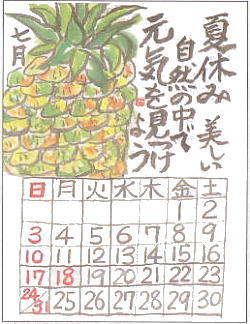 七月
夏休み 美しい
自然の中で
元気を見つけ
よっ
日 月 火 水 木 金 土
1 2
3 4 5 6 7 8 9
10 11 12 13 14 15 16
17 18 19 20 21 22 23
24/31 25 26 27 28 29 30